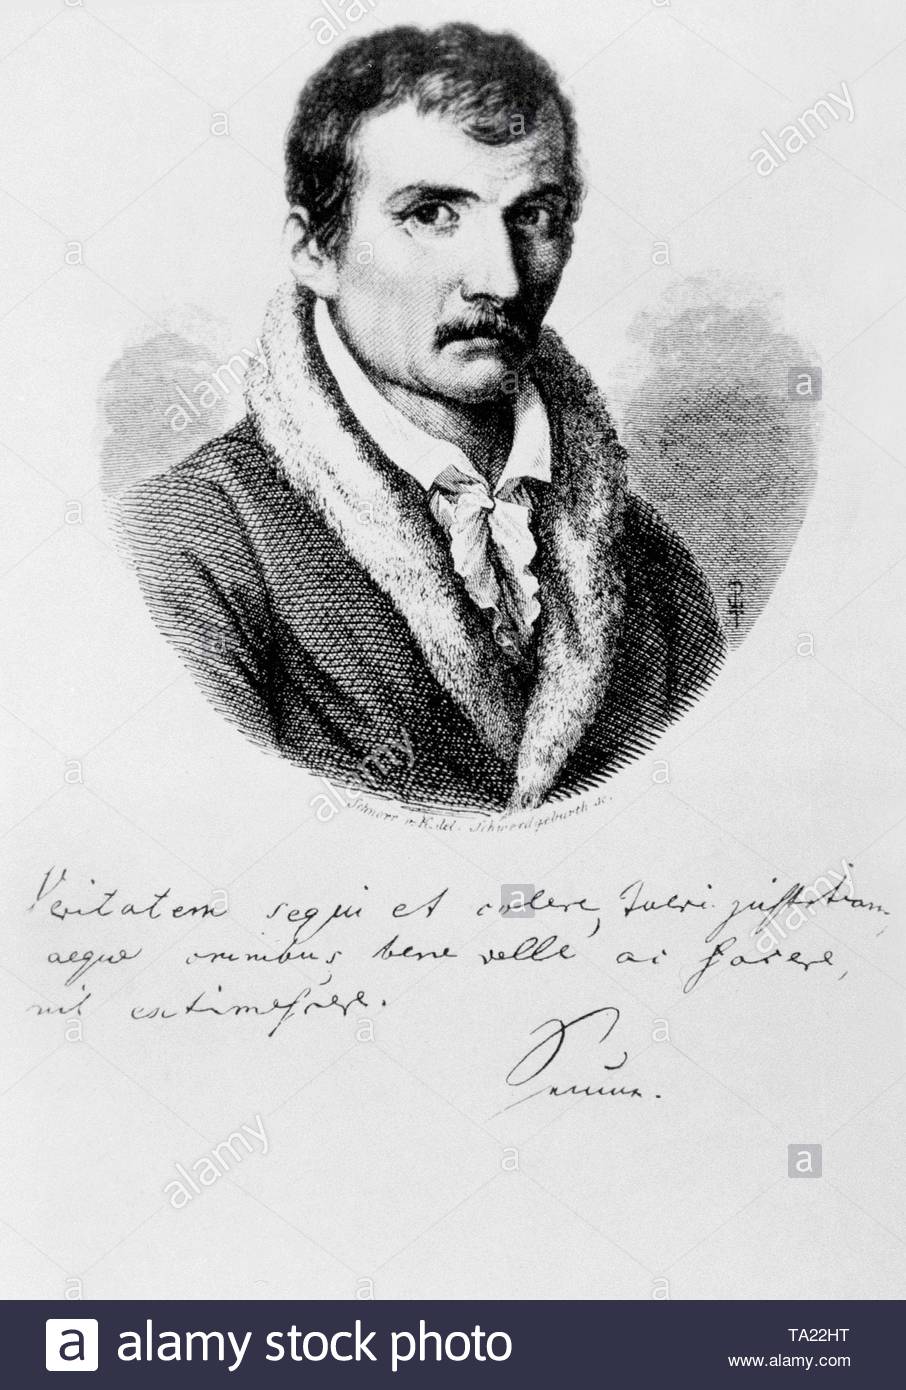 Schnorr v. K. del. Schwerdgeburth sc.
Veritatem sequi et colere, tueri justitiam,
aeque omnibus bene velle ac facere,
nil extimescere.
Seume.
alamy stock photo
TA22HT
www.alamy.com